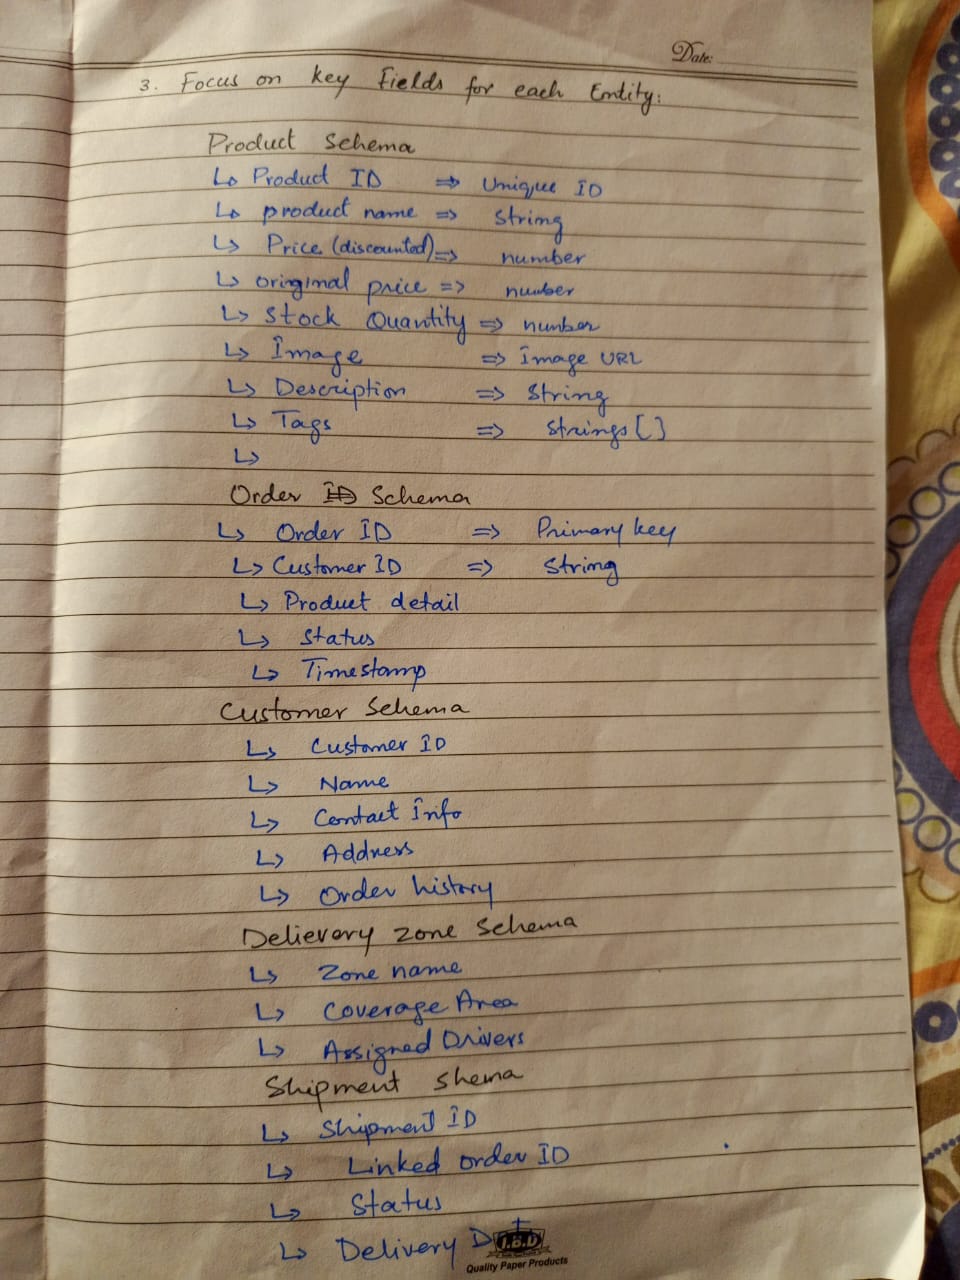 Date:
3. Focus on key Fields for each Entity:
Product Schema
↳ Product ID ⇒ Unique ID
↳ product name ⇒ string
↳ Price (discounted) ⇒ number
↳ original price => number
↳ Stock Quantity ⇒ number
↳ Image ⇒ Image URL
↳ Description ⇒ String
↳ Tags ⇒ strings[]
↳
Order ID Schema
↳ Order ID ⇒ Primary key
↳ Customer ID ⇒ String
↳ Product detail
↳ Status
↳ Timestamp
Customer Schema
↳ Customer ID
↳ Name
↳ Contact Info
↳ Address
↳ Order history
Delievery zone Schema
↳ Zone name
↳ Coverage Area
↳ Assigned Drivers
Shipment shema
↳ Shipment ID
↳ Linked order ID
↳ Status
↳ Delivery
I.B.D
Quality Paper Products